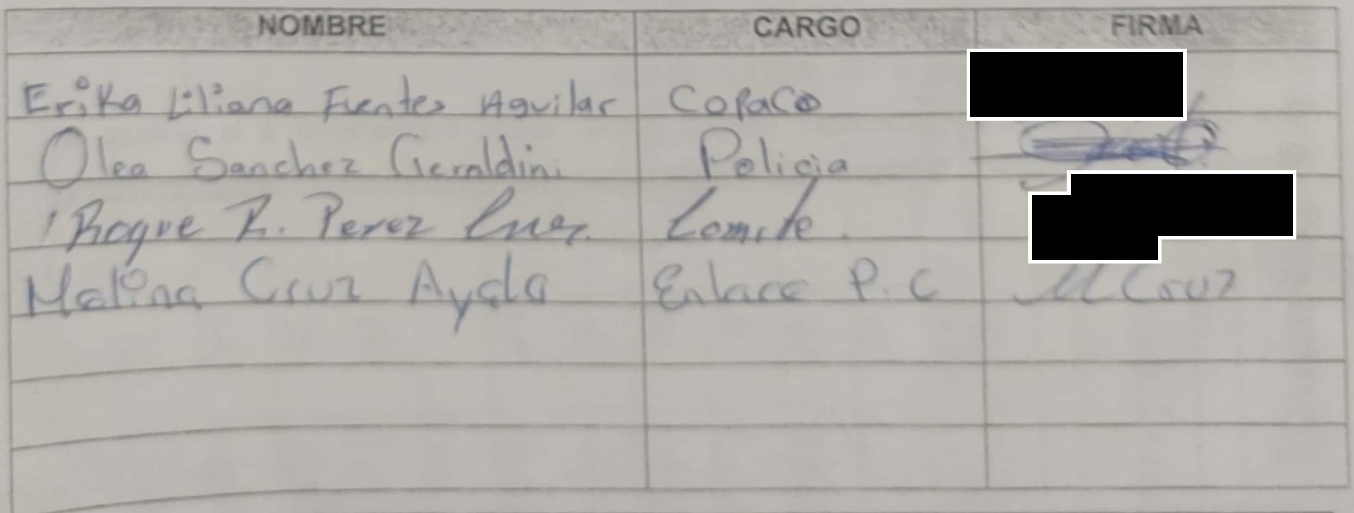 NOMBRE CARGO FIRMA
Erika Liliana Fuentes Aguilar COPACO
Olea Sanchez Geraldini Policia
Roque R. Perez Comite.
Malina Cruz Ayala Enlace P. C M Cruz